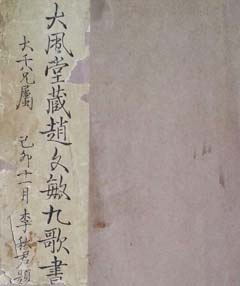 大風堂藏趙文敏九歌書
大千兄屬 己卯十一月 李秋君題